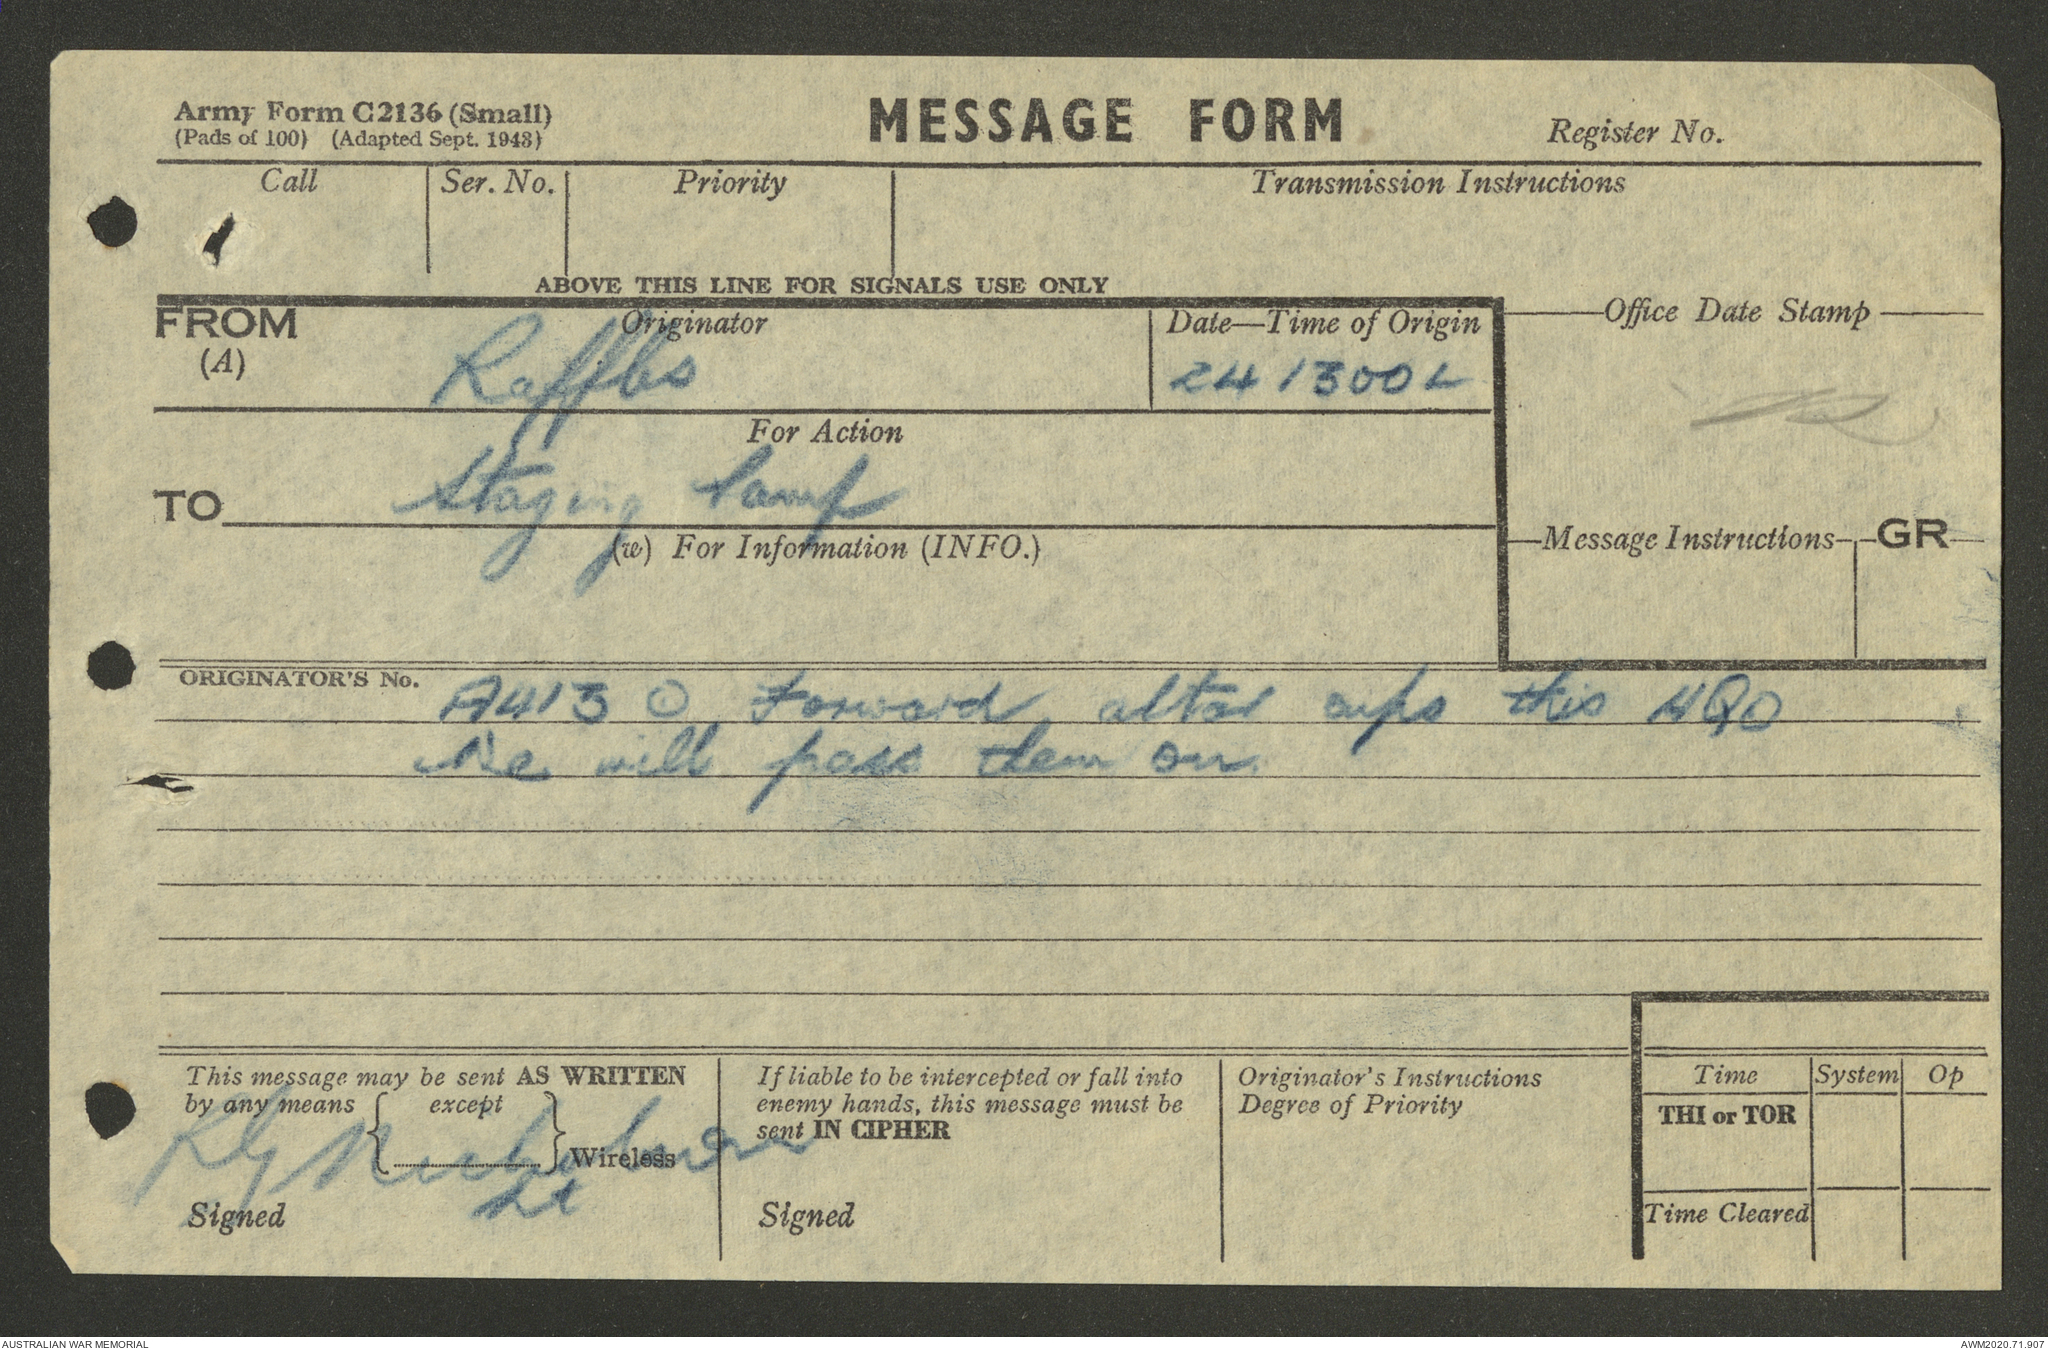 Army Form C2136 (Small)
(Pads of 100) (Adapted Sept. 1943)
MESSAGE FORM
Register No.
Call
Ser. No.
Priority
Transmission Instructions
ABOVE THIS LINE FOR SIGNALS USE ONLY
FROM
(A)
Originator
Raffles
Date—Time of Origin
241300L
Office Date Stamp
For Action
TO
Staging Camp
(w) For Information (INFO.)
Message Instructions
GR
ORIGINATOR'S No.
A413 Forward altar cups this HQ
We will pass them on.
This message may be sent AS WRITTEN
by any means { except
} Wireless
Lt
Signed
If liable to be intercepted or fall into
enemy hands, this message must be
sent IN CIPHER
Signed
Originator's Instructions
Degree of Priority
Time
System
Op
THI or TOR
Time Cleared
AUSTRALIAN WAR MEMORIAL
AWM2020.71.907